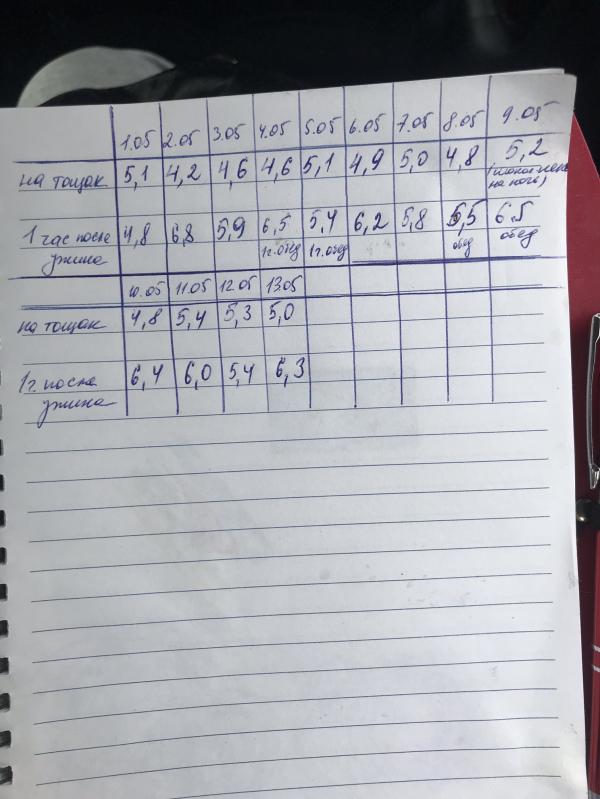 1.05 2.05 3.05 4.05 5.05 6.05 7.05 8.05 9.05
на тощак 5,1 4,2 4,6 4,6 5,1 4,9 5,0 4,8 5,2
на ночь)
1 час после ужина 4,8 6,8 5,9 6,5 5,4 6,2 5,8 5,5 6.5
1г. обед 1г. обед обед обед
10.05 11.05 12.05 13.05
на тощак 4,8 5,4 5,3 5,0
1г. после ужина 6,4 6,0 5,4 6,3